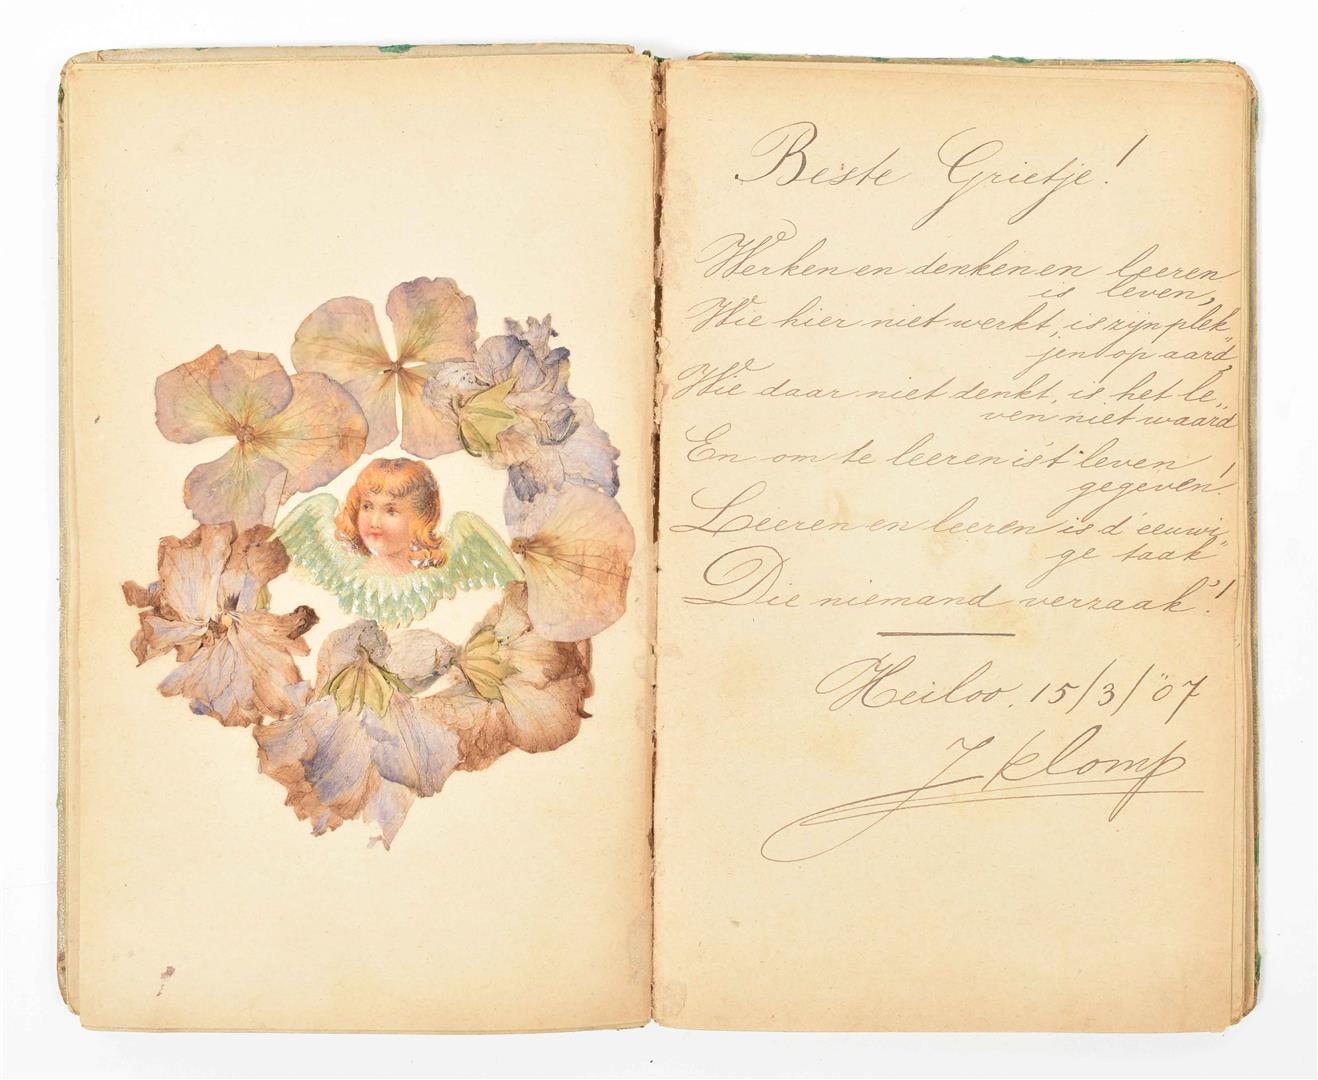 Beste Grietje!
Werken en denken en leeren
is leven,
Wie hier niet werkt, is zijn plek„
jen op aard,
Wie daar niet denkt, is het le„
ven niet waard
En om te leeren is 't leven
gegeven!
Leeren en leeren is d' eeuwi„
ge taak
Die niemand verzaak'!
Heiloo, 15/3/'07
J Klomp